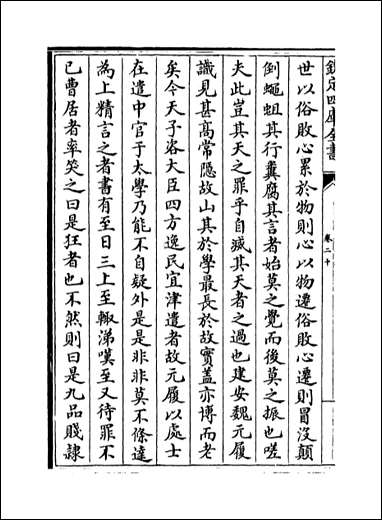 欽定四庫全書
卷二十
世以俗敗心累於物則心以物遷俗敗心遷則冒沒顛
倒蠅蛆其行糞腐其言者始莫之覺而後莫之振也嗟
夫此豈其天之罪乎自滅其天者之過也建安魏元履
識見甚高常隱故山其於學最長於故實蓋亦博而老
矣今天子洛大臣四方逸民宜津遣者故元履以處士
在遣中官于太學乃能不自疑外是是非非莫不條達
為上精言之者書有至日三上至輙涕嘆至又待罪不
已曹居者率笑之曰是狂者也不然則曰是九品賤隸